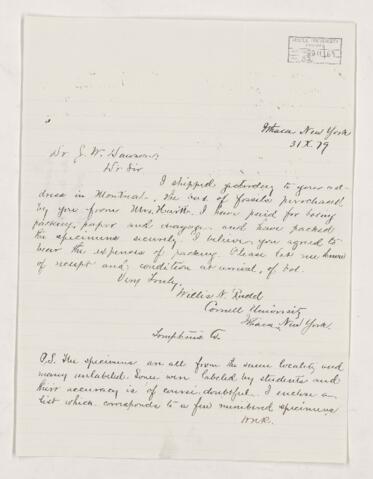 Ithaca New York
31 X. 79
Dr J. W. Dawson,
Dr Sir
I shipped yesterday to your ad-
dress in Montreal. The box of fossils purchased
by you from Mrs. Hartt. I have paid for boxing
packing, paper and drayage and have packed
the specimens securely. I believe you agreed to
bear the expenses of packing. Please let me know
of receipt and condition at arrival, of box.
Very Truly.
Willis N. Rudd
Cornell University
Ithaca New York.
Tompkins Co.
P.S. The specimens are all from the same locality and
many unlabeled. Some were labeled by students and
their accuracy is of course doubtful. I enclose a
list which corresponds to a few numbered specimens
WNR.